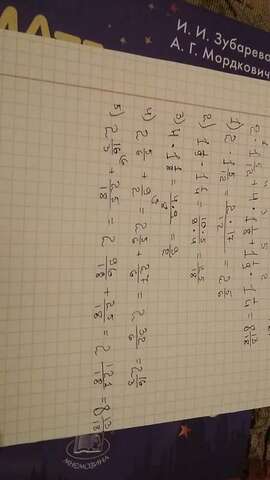 И. И. Зубарева
А. Г. Мордкович
2 · 1 5/12 + 4 · 1 1/8 + 1 1/9 · 1 1/4 = 8 13/18
1) 2 · 1 5/12 = 2 · 17/12 = 2 5/6
2) 1 1/9 · 1 1/4 = 10·5/9·4 = 25/18
3) 4 · 1 1/8 = 4·9/8 = 9/2
4) 2 5/6 + 9/2 = 2 5/6 + 27/6 = 2 32/6 = 2 16/3
5) 2 16/3 + 25/18 = 2 96/18 + 25/18 = 2 121/18 = 8 13/18
МНЕМОЗИНА